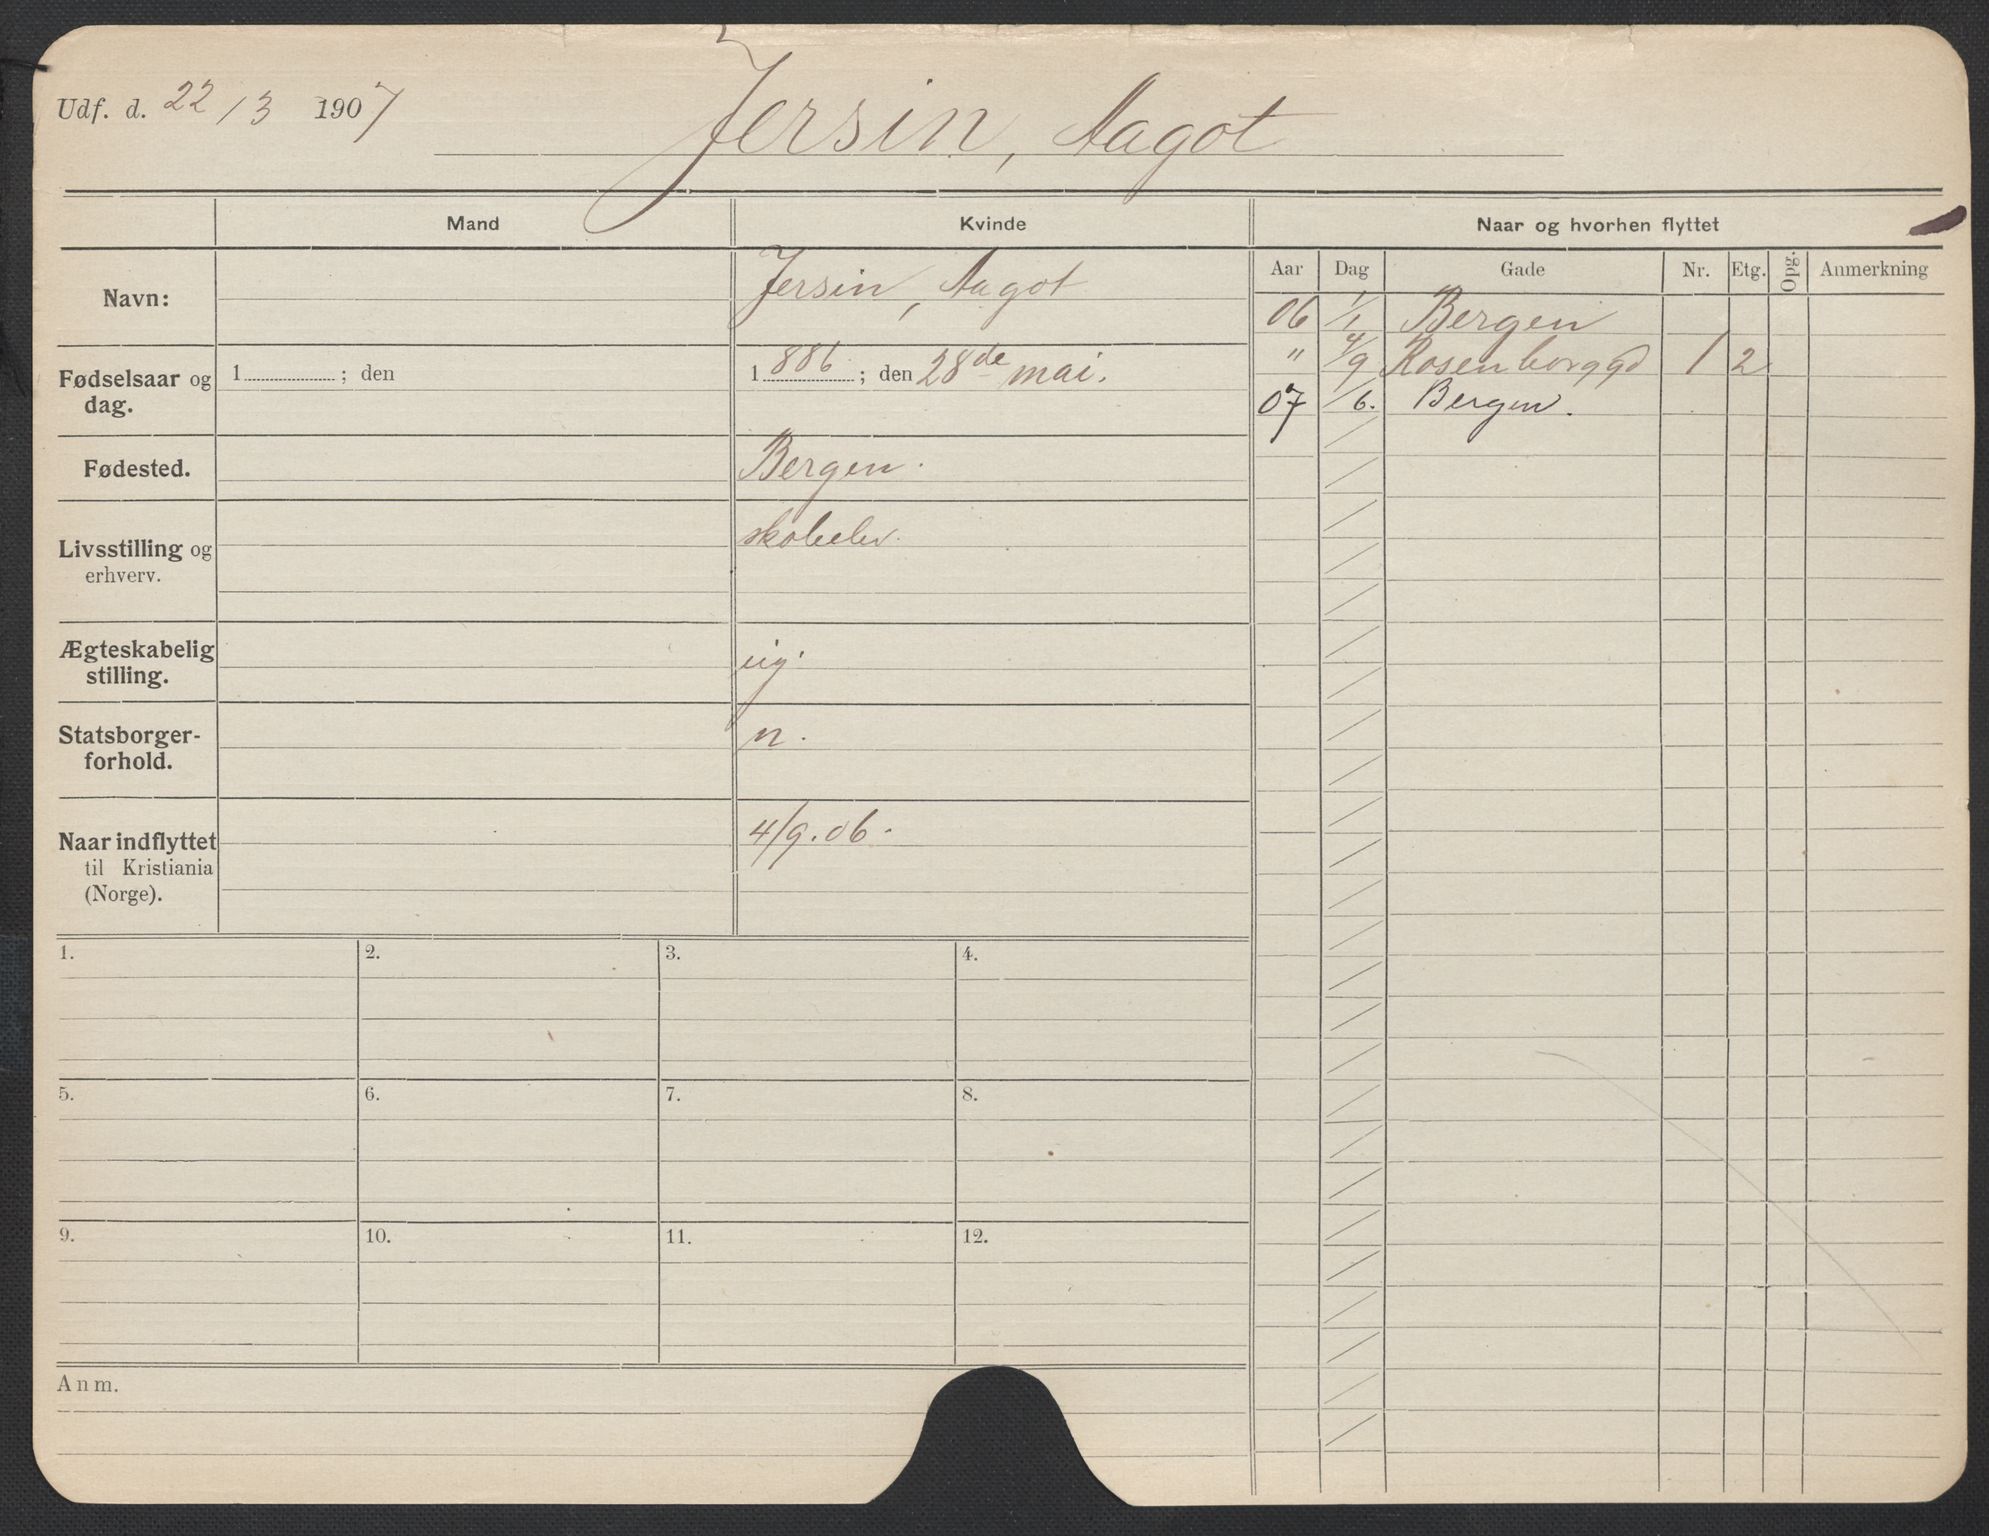 Udf. d. 22/3 1907
Jersin, Aagot
Mand Kvinde Naar og hvorhen flyttet
Aar Dag Gade Nr. Etg. Opg. Anmerkning
Navn: Jersin, Aagot
06 1/1 Bergen
" 4/9 Rosenborggd 1 2
07 /6. Bergen.
Fødselsaar og
dag.
1 ; den
1886 ; den 28de mai.
Fødested. Bergen.
Livsstilling og
erhverv.
skoleelev.
Ægteskabelig
stilling.
uig.
Statsborger-
forhold.
n.
Naar indflyttet
til Kristiania
(Norge).
4/9.06.
1. 2. 3. 4.
5. 6. 7. 8.
9. 10. 11. 12.
Anm.